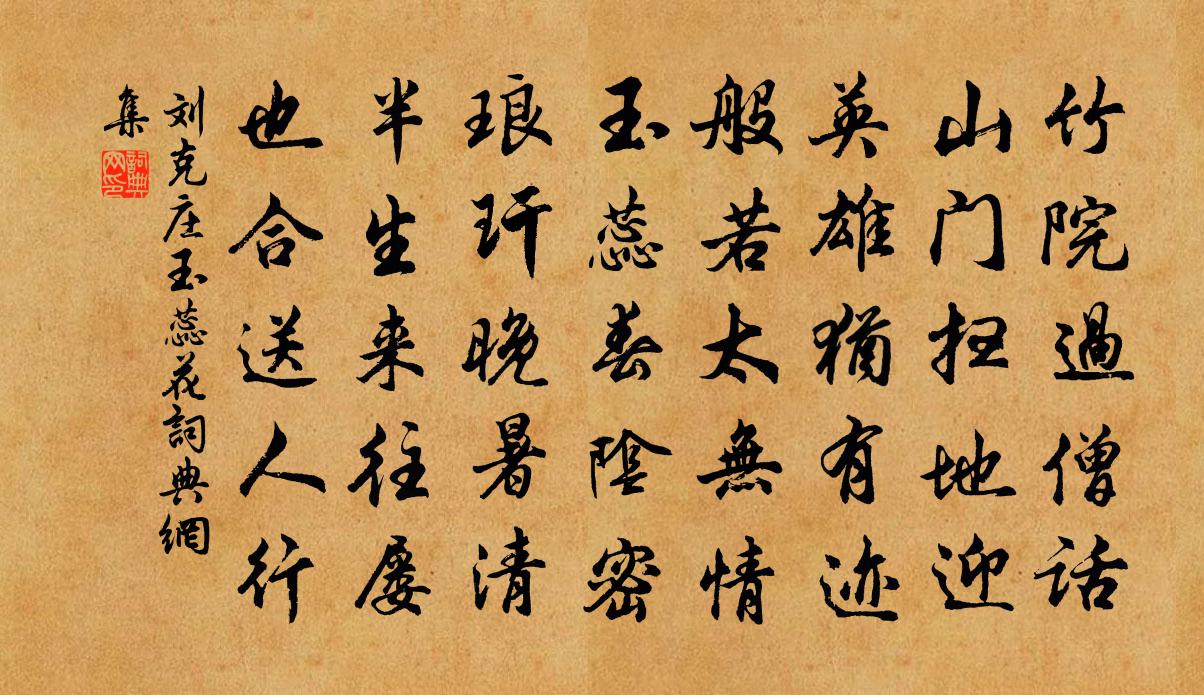 竹院過僧話
山门扫地迎
英雄猶有迹
般若太無情
玉蕊春陰密
琅玕晚暑清
半生来往屡
也合送人行
刘克庄玉蕊花詞典網
集
詞典网印